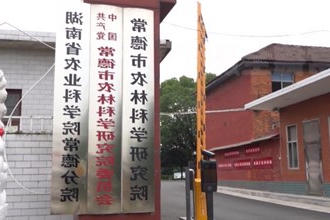 常德市农林科学研究院
中国共产党
常德市农林科学研究院委员会
湖南省农业科学院常德分院